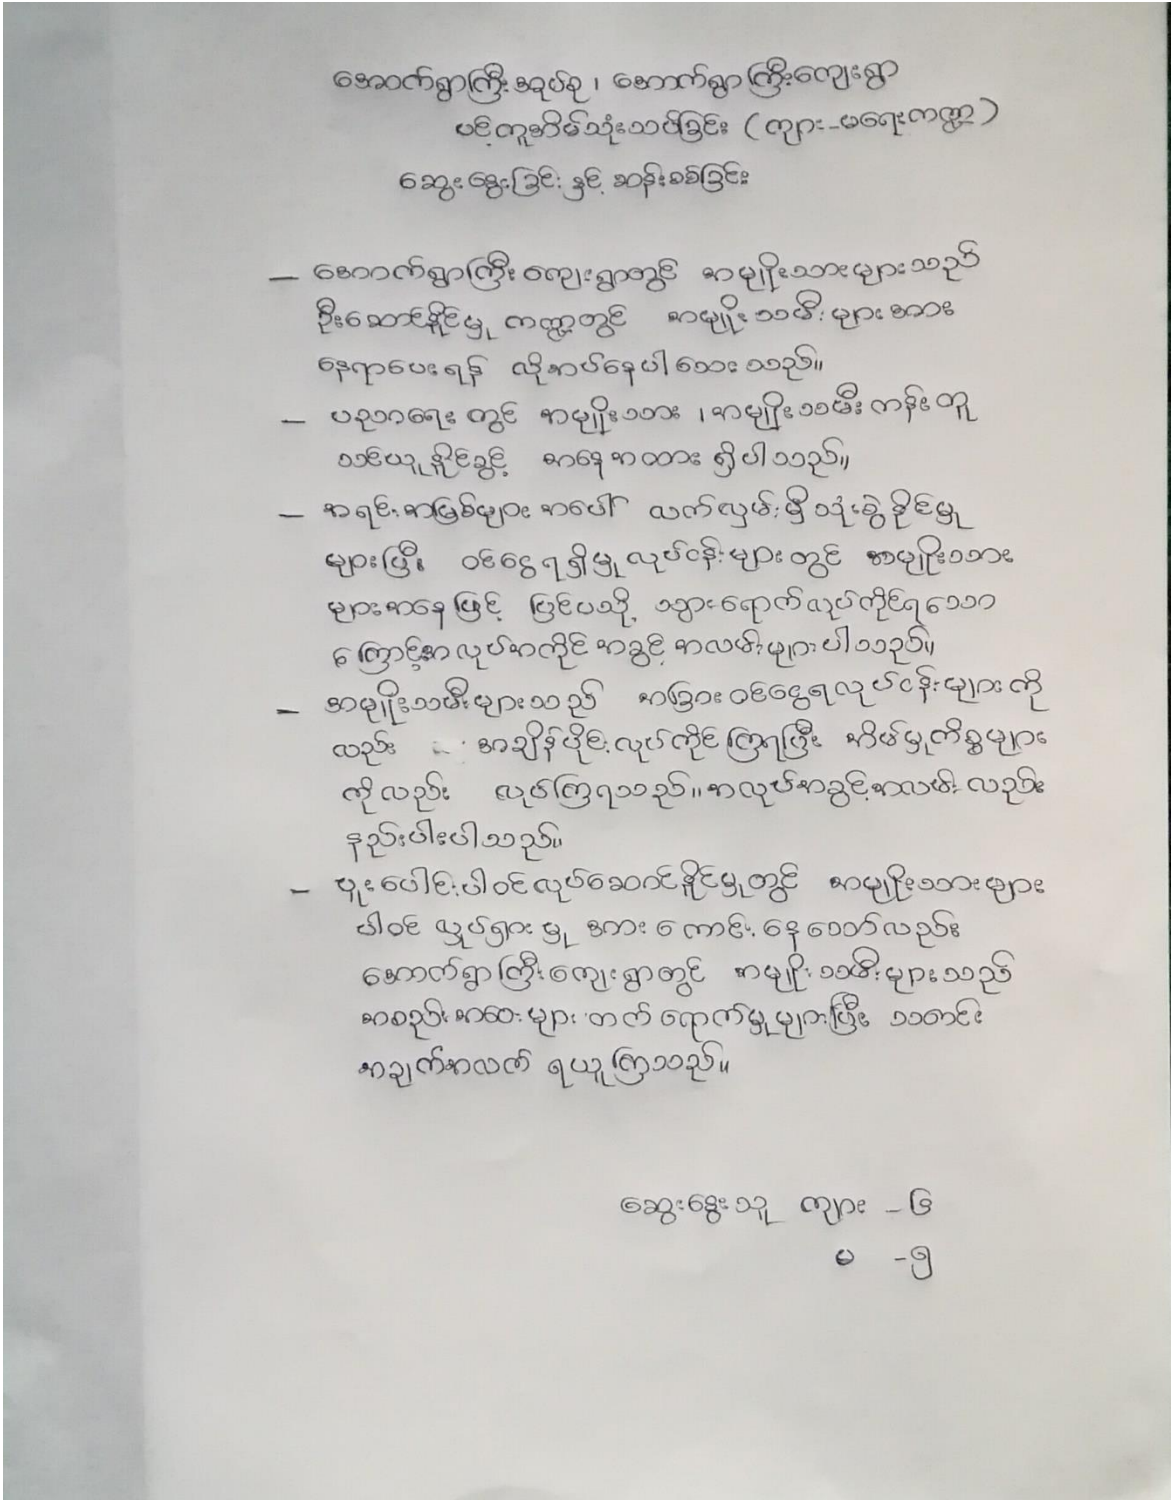 အောက်ရွာကြီးအုပ်စု ၊ အောက်ရွာကြီးကျေးရွာ
ပင့်ကူအိမ်သုံးသပ်ခြင်း (ကျား-မရေးကဏ္ဍ)
ဆွေးနွေးခြင်း နှင့် ဆန်းစစ်ခြင်း
– အောက်ရွာကြီးကျေးရွာတွင် အမျိုးသားများသည်
ဦးဆောင်နိုင်မှု ကဏ္ဍတွင် အမျိုးသမီးများအား
နေရာပေးရန် လိုအပ်နေပါသေးသည်။
– ပညာရေးတွင် အမျိုးသား ၊ အမျိုးသမီး တန်းတူ
သင်ယူနိုင်ခွင့် အနေအထား ရှိပါသည်။
– အရင်းအမြစ်များအပေါ် လက်လှမ်းမှီသုံးစွဲနိုင်မှု
များပြီး ဝင်ငွေရရှိမှုလုပ်ငန်းများတွင် အမျိုးသား
များအနေဖြင့် ပြင်ပသို့ သွားရောက်လုပ်ကိုင်ရသော
ကြောင့်အလုပ်အကိုင်အခွင့်အလမ်းများပါသည်။
– အမျိုးသမီးများသည် အခြားဝင်ငွေရလုပ်ငန်းများကို
လည်း အချိန်ပိုင်းလုပ်ကိုင်ကြရပြီး အိမ်မှုကိစ္စများ
ကိုလည်း လုပ်ကြရသည်။ အလုပ်အခွင့်အလမ်းလည်း
နည်းပါးပါသည်။
– ပူးပေါင်းပါဝင်လုပ်ဆောင်နိုင်မှုတွင် အမျိုးသားများ
ပါဝင်လှုပ်ရှားမှု အားကောင်းနေသော်လည်း
အောက်ရွာကြီးကျေးရွာတွင် အမျိုးသမီးများသည်
အစည်းအဝေးများ တက်ရောက်မှုများပြီး သတင်း
အချက်အလက် ရယူကြသည်။
ဆွေးနွေးသူ ကျား - ၆
မ - ၅